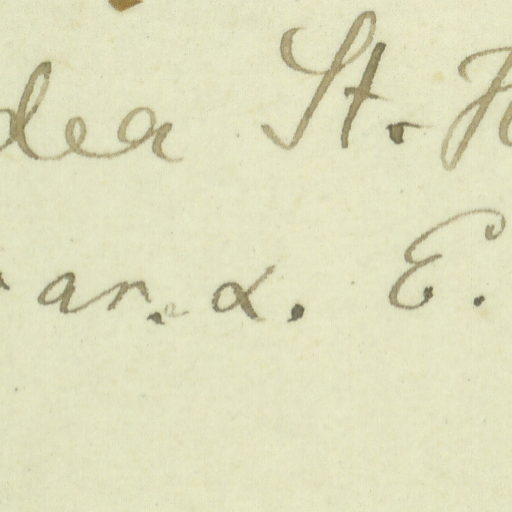 dea St. H
ar. α. E.